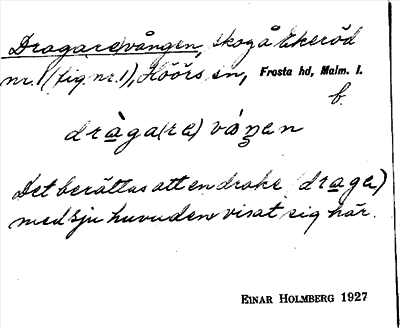 Dragare)vången, skog å Ekeröd
nr 1 (fig. nr. 1), Höörs sn, Frosta hd, Malm. l.
b.
dràga(re) váŋen
Det berättas att en drake (draga)
med sju huvuden visat sig här.
EINAR HOLMBERG 1927